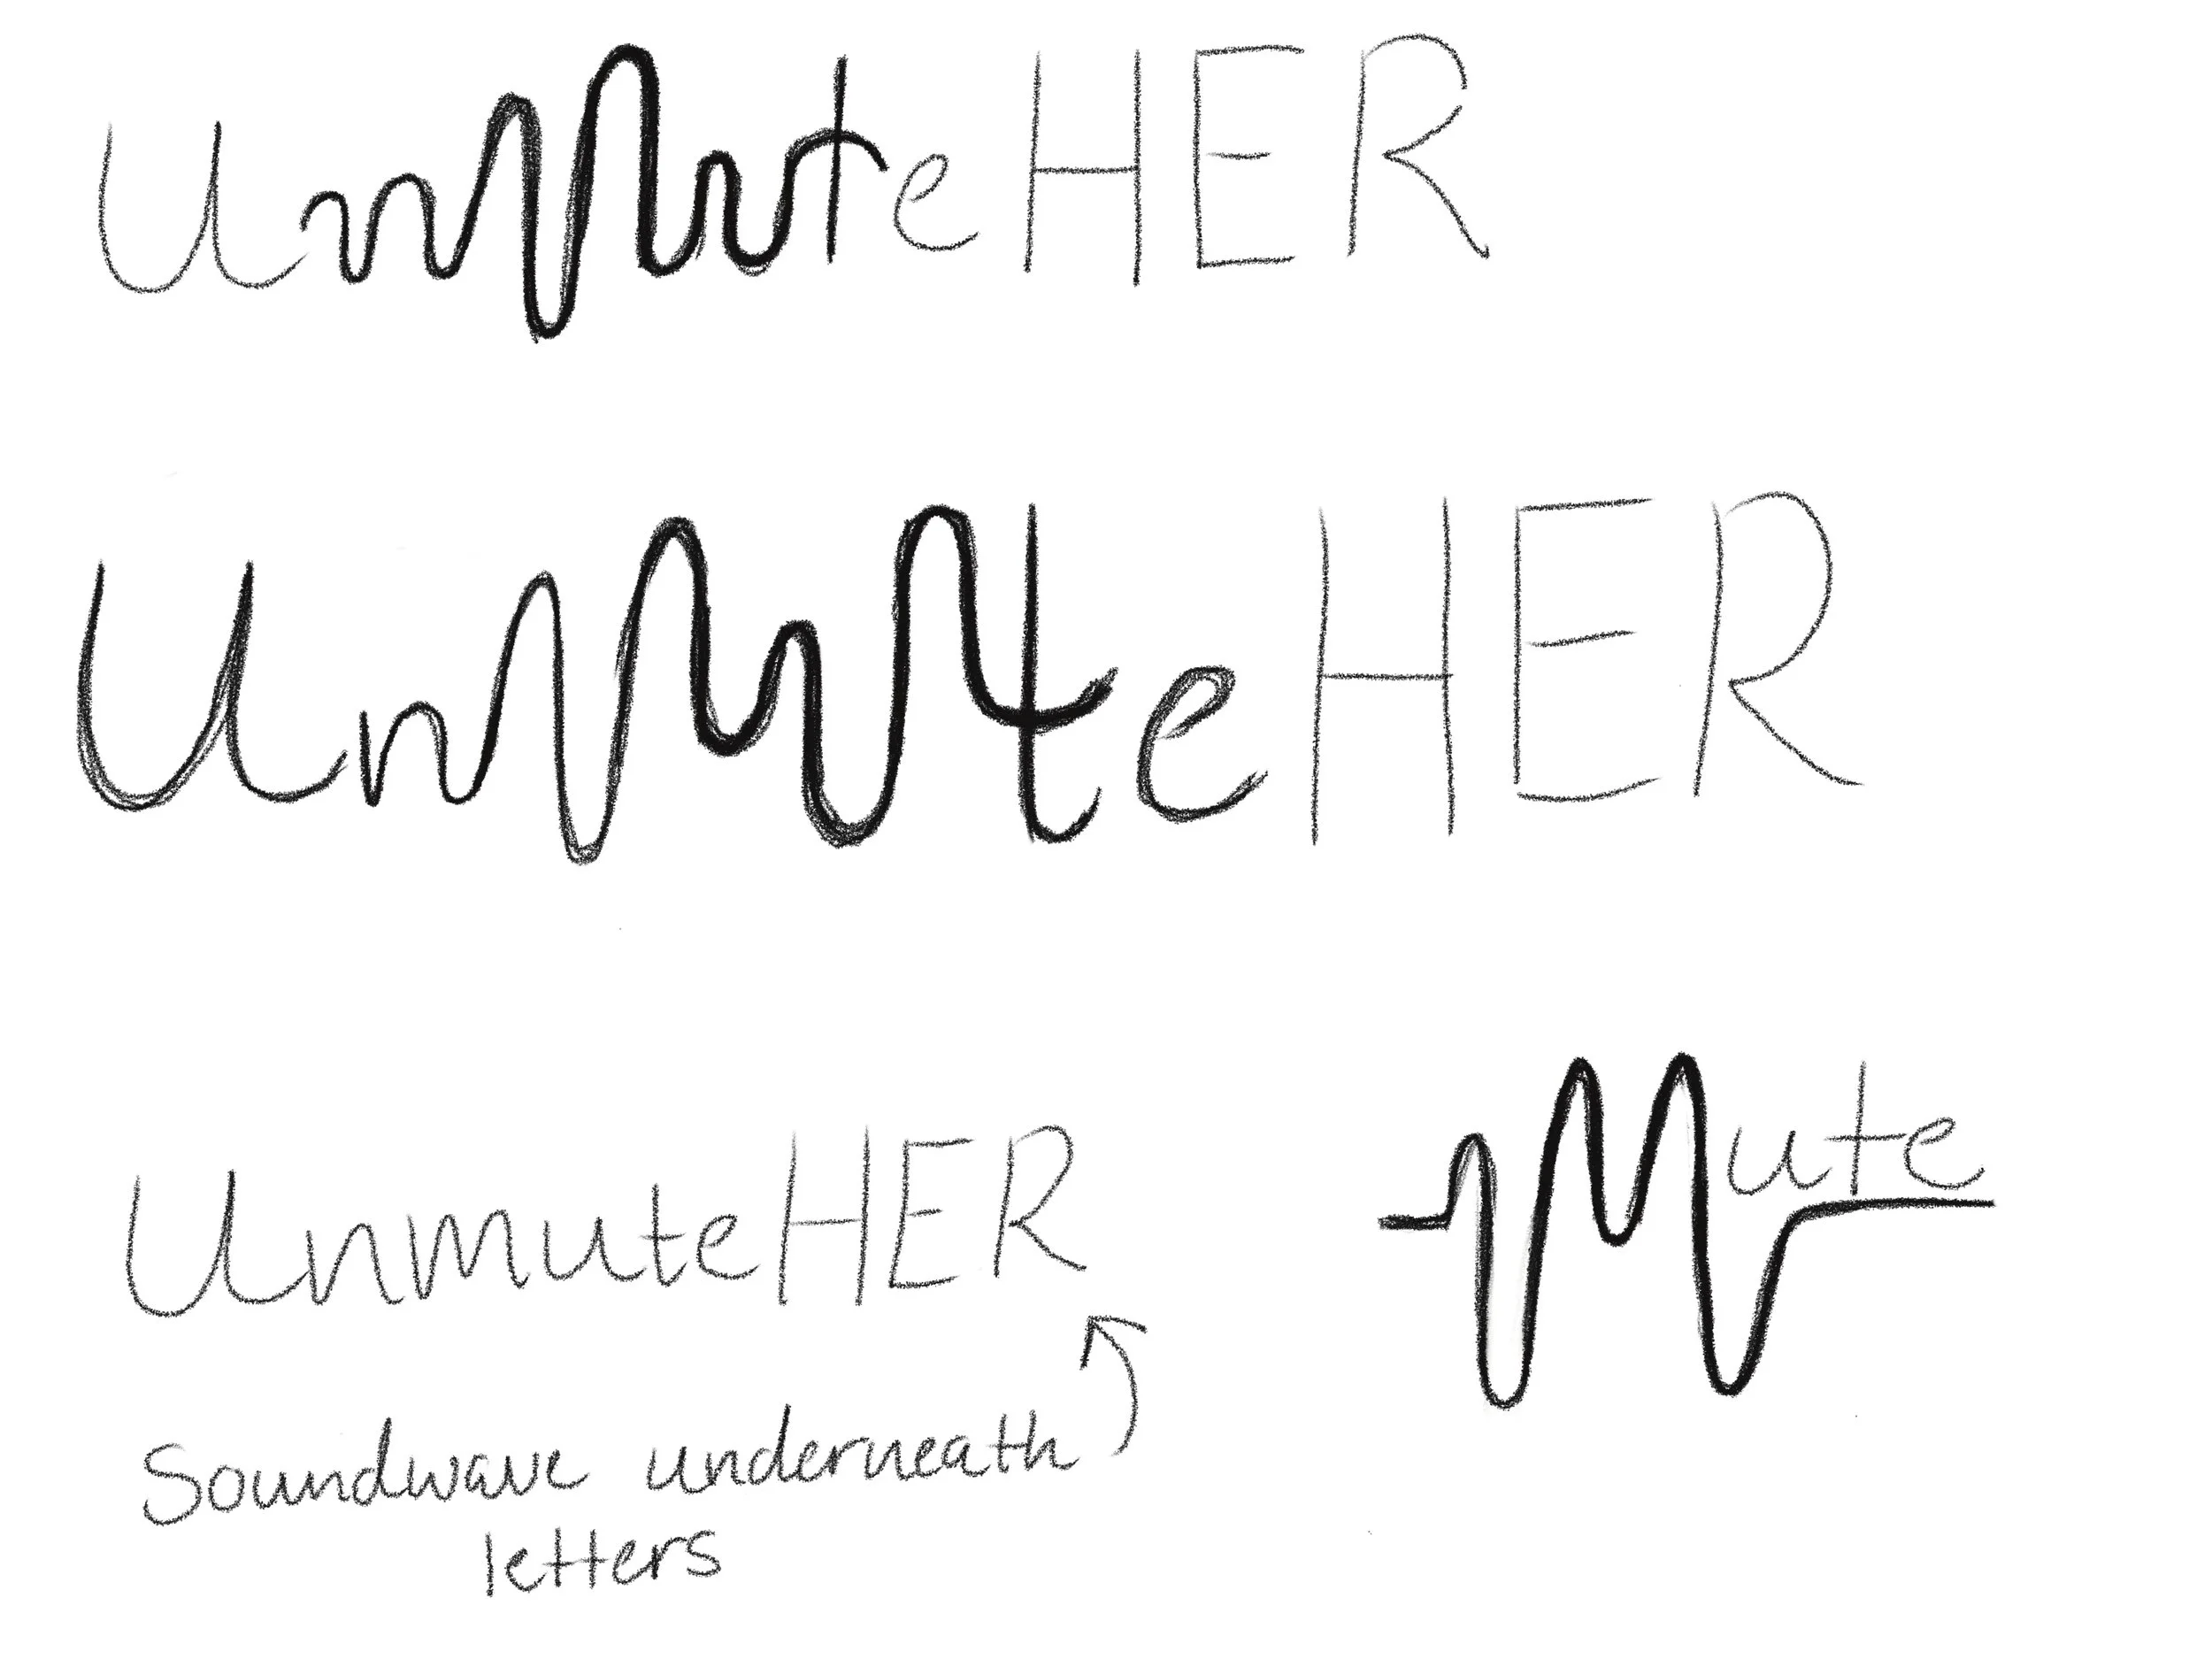 UnmuteHER
UnmuteHER
UnmuteHER
Mute
Soundwave underneath
letters